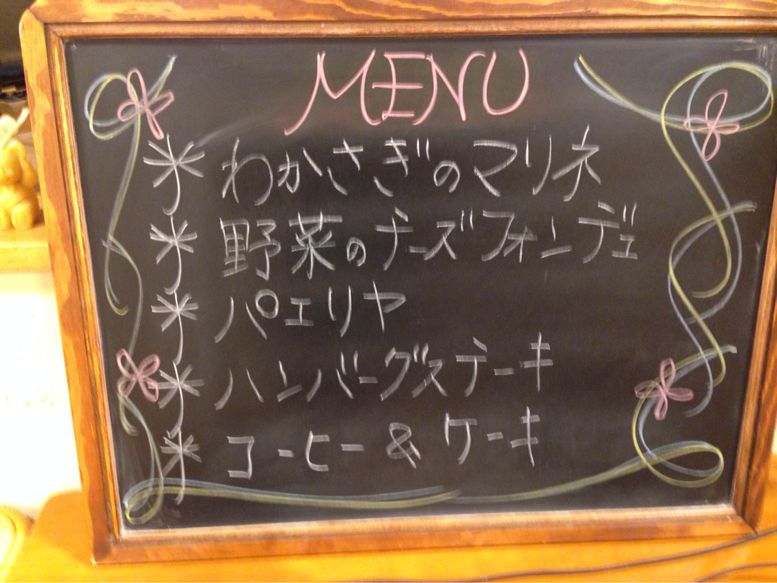 MENU
* わかさぎのマリネ
* 野菜のチーズフォンデュ
* パエリヤ
* ハンバーグステーキ
* コーヒー&ケーキ